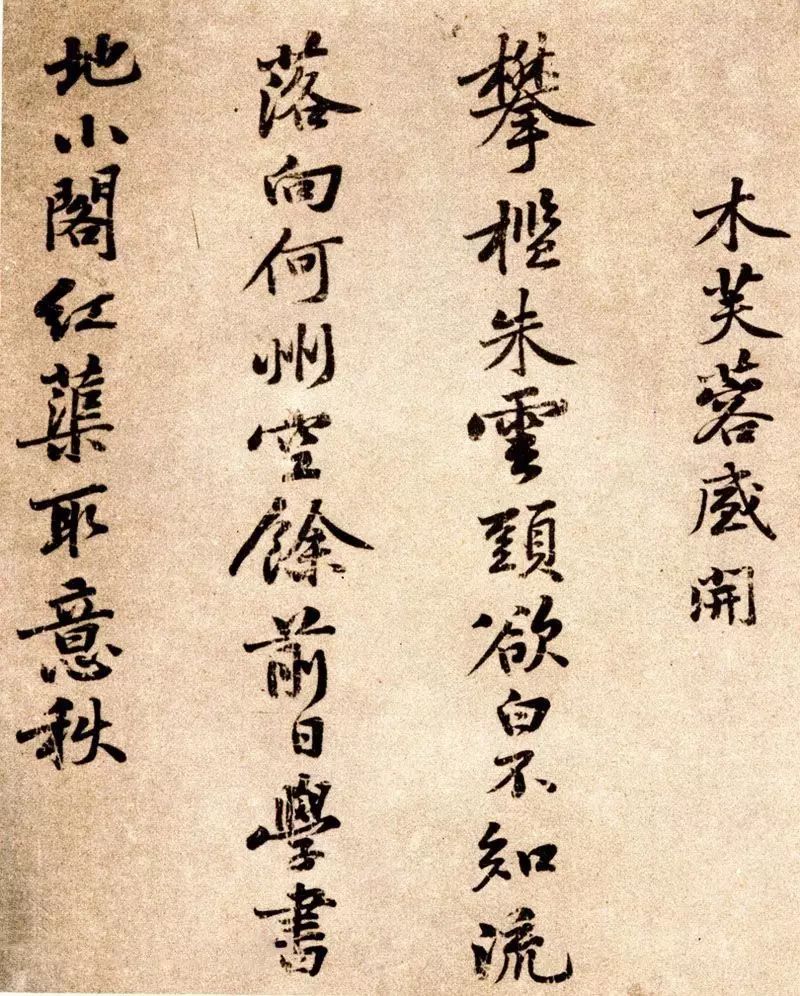 木芙蓉盛開
攀檻朱雲頭欲白不知流
落向何州空餘前日學書
地小閣紅蕖取意秋